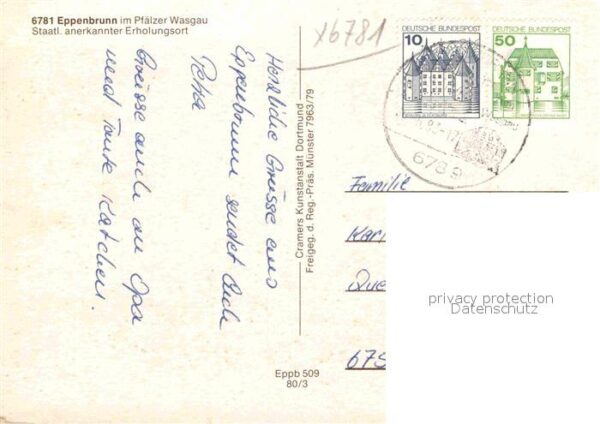 6781 Eppenbrunn im Pfälzer Wasgau
Staatl. anerkannter Erholungsort
x6781
DEUTSCHE BUNDESPOST
10
DEUTSCHE BUNDESPOST
50
6789
Herzliche Grüsse aus
Eppenbrunn sendet Euch
Petra
Grüsse auch an Opa
und Tante Kätchen.
Cramers Kunstanstalt Dortmund
Freigeg. d. Reg.-Präs. Münster 7963/79
Familie
Kar
Que
675
Eppb 509
80/3
privacy protection
Datenschutz